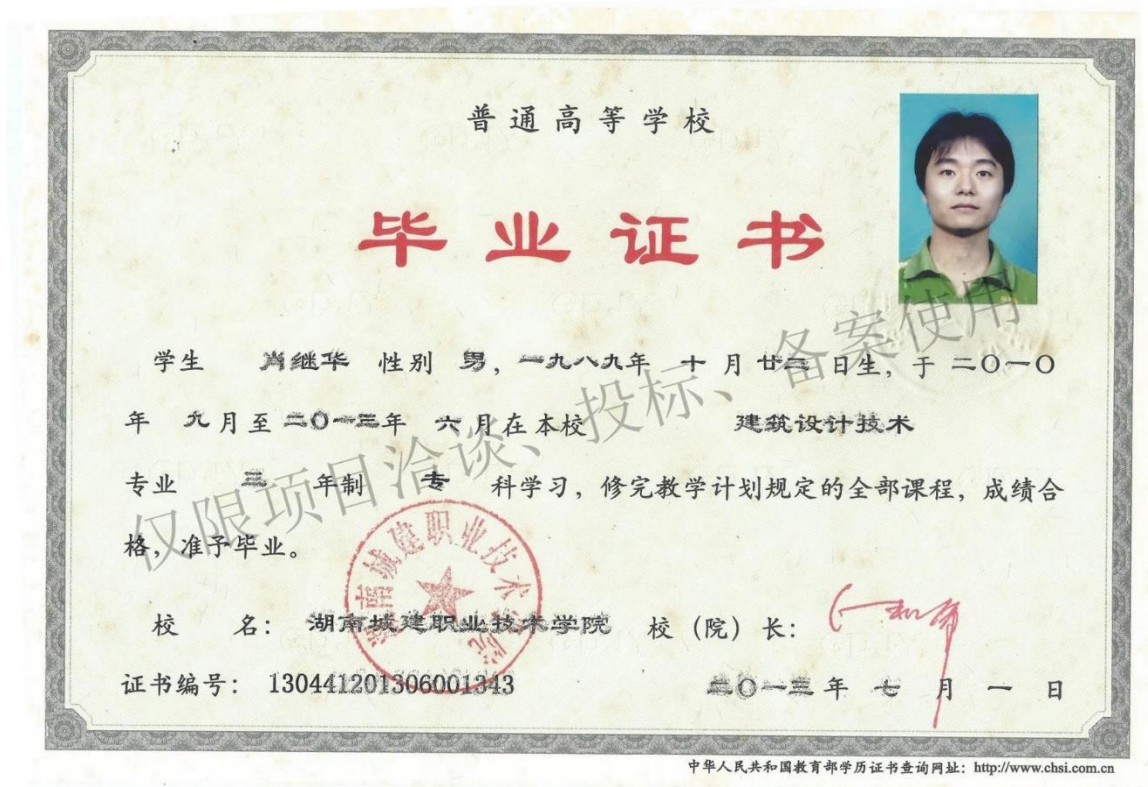 普通高等学校
毕业证书
学生 肖继华 性别 男，一九八九年 十月廿三日生，于二〇一〇
年 九月至二〇一三年 六月在本校 建筑设计技术
专业 三 年制 专 科学习，修完教学计划规定的全部课程，成绩合
格，准予毕业。
仅限项目洽谈、投标、备案使用
湖南城建职业技术学院
校 名：湖南城建职业技术学院 校（院）长：
证书编号：130441201306001343 二〇一三年 七月一日
中华人民共和国教育部学历证书查询网址：http://www.chsi.com.cn